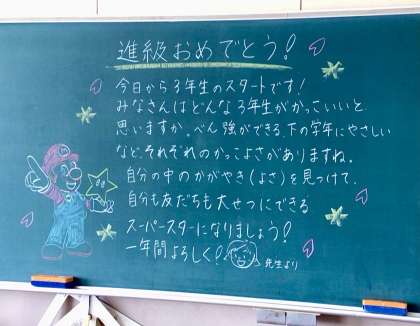 進級おめでとう!
今日から3年生のスタートです!
みなさんはどんな3年生がかっこいいと
思いますか。べん強ができる、下の学年にやさしい
など、それぞれのかっこよさがありますね。
自分の中のかがやき(よさ)を見つけて、
自分も友だちも大せつにできる
スーパースターになりましょう!
一年間よろしく!
先生より